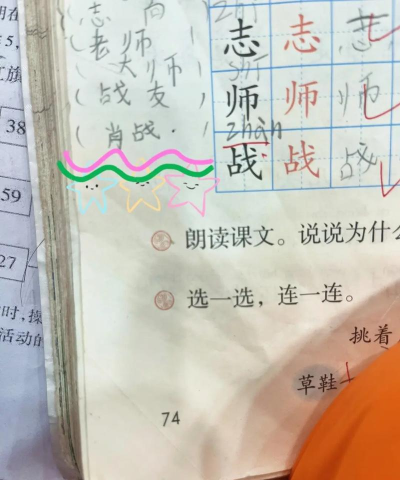 志向
志 志 志
shī
老师
大师
师 师 师
zhàn
战友
肖战.
战 战 战
38
59
27
朗读课文。说说为什么
选一选，连一连。
挑着
草鞋
74
时，探
活动的